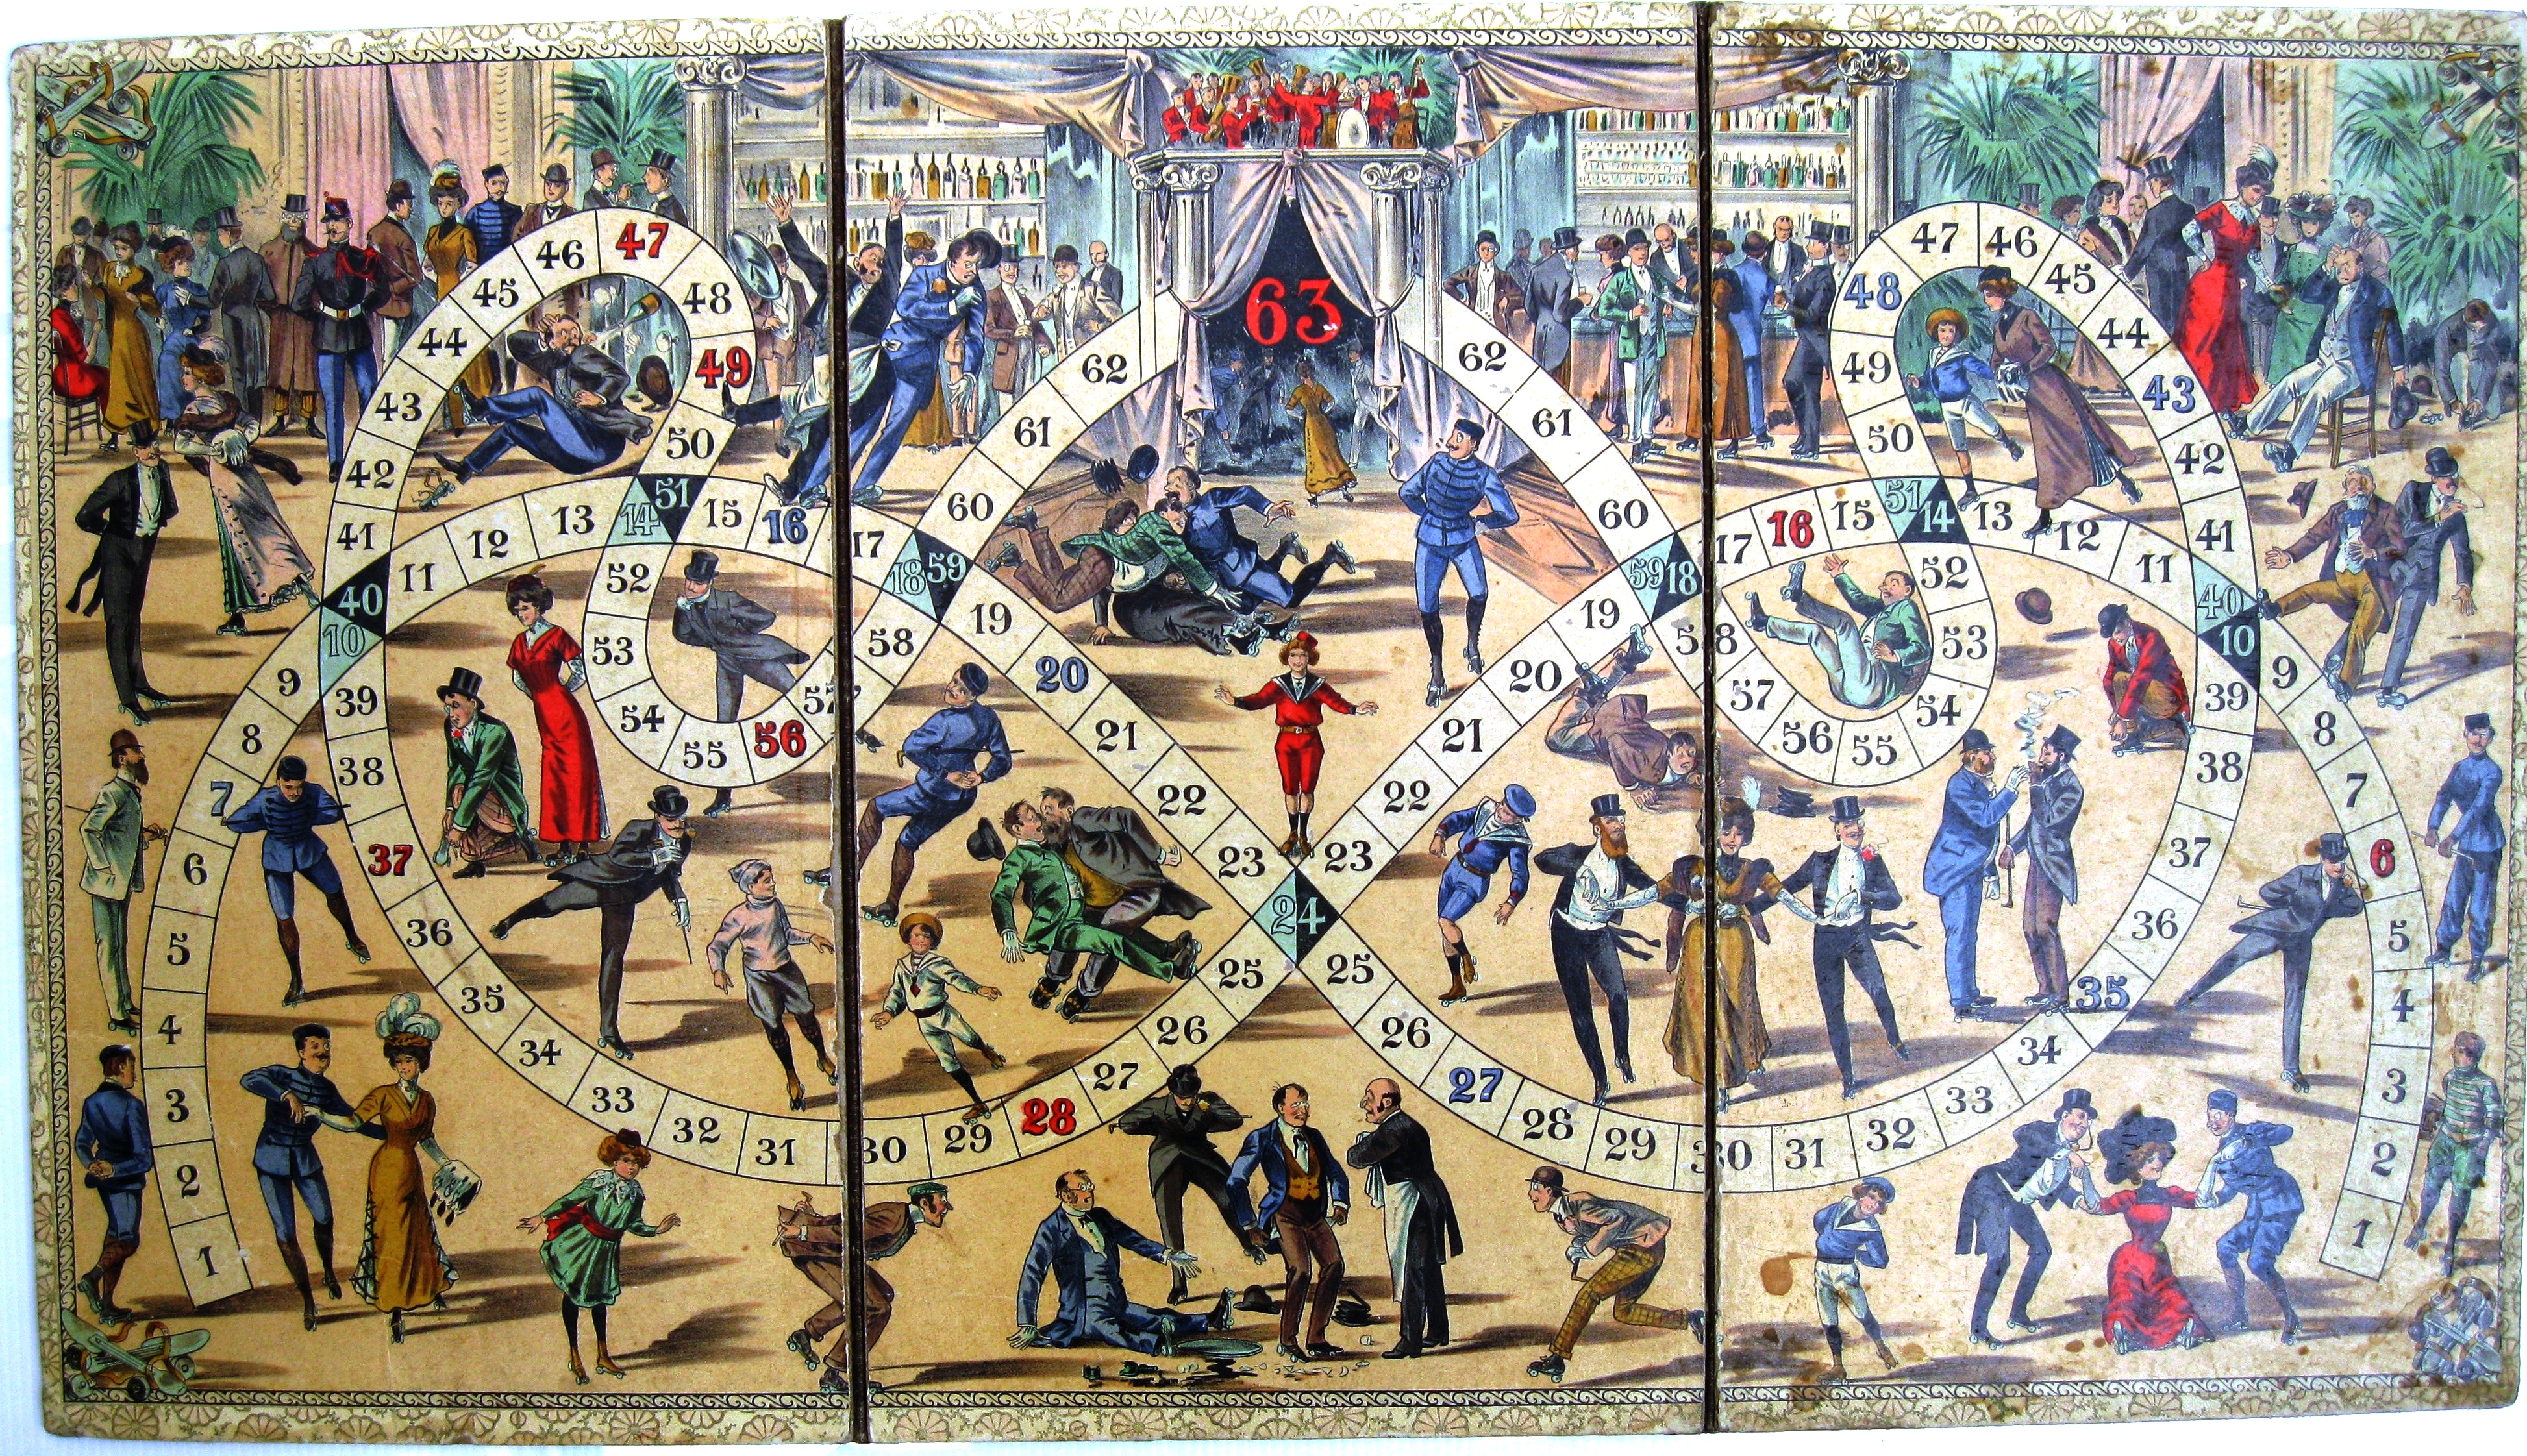 1
2
3
4
5
6
7
8
9
10
11
12
13
14
15
16
17
18
19
20
21
22
23
24
25
26
27
28
29
30
31
32
33
34
35
36
37
38
39
40
41
42
43
44
45
46
47
48
49
50
51
52
53
54
55
56
57
58
59
60
61
62
63
1
2
3
4
5
6
7
8
9
10
11
12
13
14
15
16
17
18
19
20
21
22
23
25
26
27
28
29
30
31
32
33
34
35
36
37
38
39
40
41
42
43
44
45
46
47
48
49
50
51
52
53
54
55
56
57
58
59
60
61
62